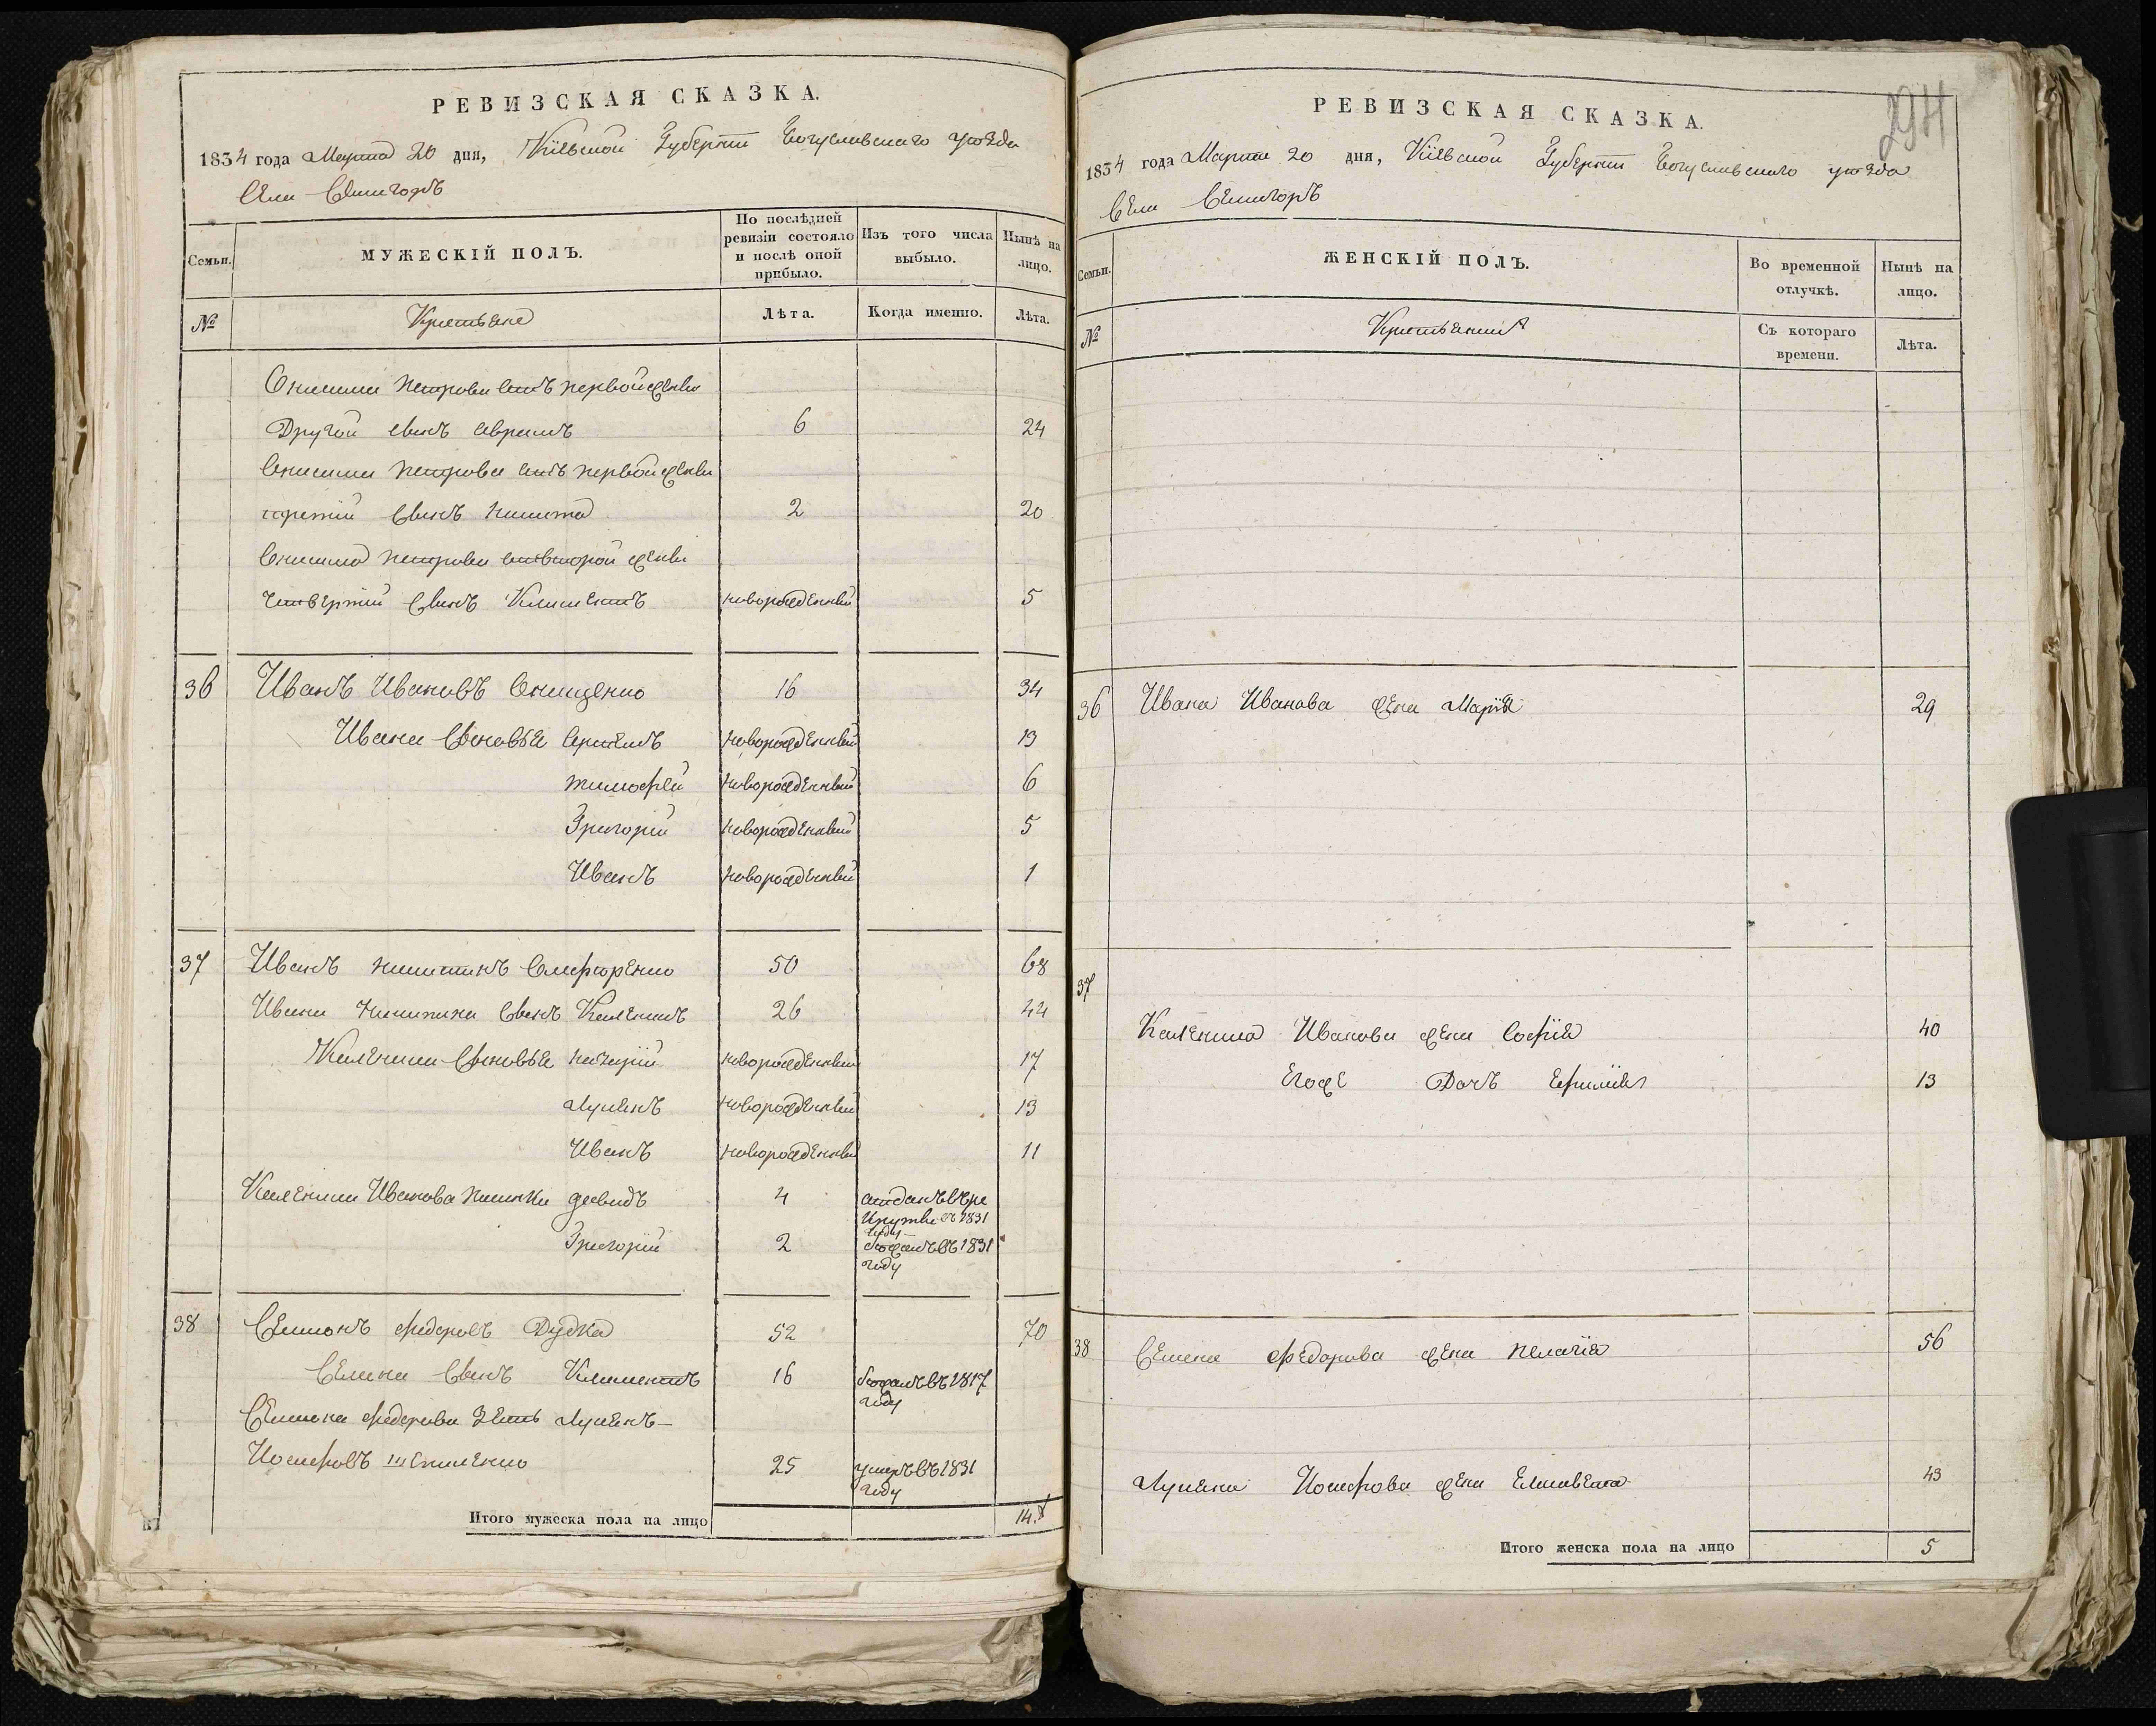 РЕВИЗСКАЯ СКАЗКА.
1834 года Марта 20 дня, Кіевской Губерніи Богуславскаго уѣзда
Села Семигоръ
Семьи.
МУЖЕСКІЙ ПОЛЪ.
По послѣдней ревизіи состояло и послѣ оной прибыло.
Изъ того числа выбыло.
Нынѣ на лицо.
№
Крестьяне
Лѣта.
Когда именно.
Лѣта.
Онисима Петрова отъ первой жены
Другой сынъ Аврамъ 6 24
Онисима Петрова отъ первой жены
третій сынъ Никита 2 20
Онисима Петрова отъ второй жены
Четвертій сынъ Климентъ новорожденный 5
36 Иванъ Ивановъ Онищенко 16 34
Ивана сыновья новорожденный 13
тимофей новорожденный 6
Григорій новорожденный 5
Иванъ новорожденный 1
37 Иванъ Никитинъ 50 68
Ивана Никитина сынъ Каленикъ 26 44
Каленика сыновья новорожденный 17
Лукянъ новорожденный 13
Иванъ новорожденный 11
Каленика Иванова давидъ 4 отданъ въ ре
круты въ 1831
году
Григорій 2 бѣжалъ въ 1831
году
38 Семионъ Федоровъ Дудка 52 70
Семиона сынъ Климентъ 16 бѣжалъ въ 1817
году
Семиона Федорова Зеть Лукянъ
Иосифовъ 25 умеръ въ 1831
году
Итого мужеска пола на лицо 14.
294
РЕВИЗСКАЯ СКАЗКА.
1834 года Марта 20 дня, Кіевской Губерніи Богуславскаго уѣзда
Села Семигоръ
Семьи.
ЖЕНСКІЙ ПОЛЪ.
Во временной отлучкѣ.
Нынѣ на лицо.
№
Крестьянки
Съ котораго времени.
Лѣта.
36 Ивана Иванова жена Марія 29
37
Каленика Иванова жена Софія 40
Егоже Дочъ 13
38 Семена Федорова жена Пелагія 56
Лукяна Иосифова жена Елисавета 43
Итого женска пола на лицо 5